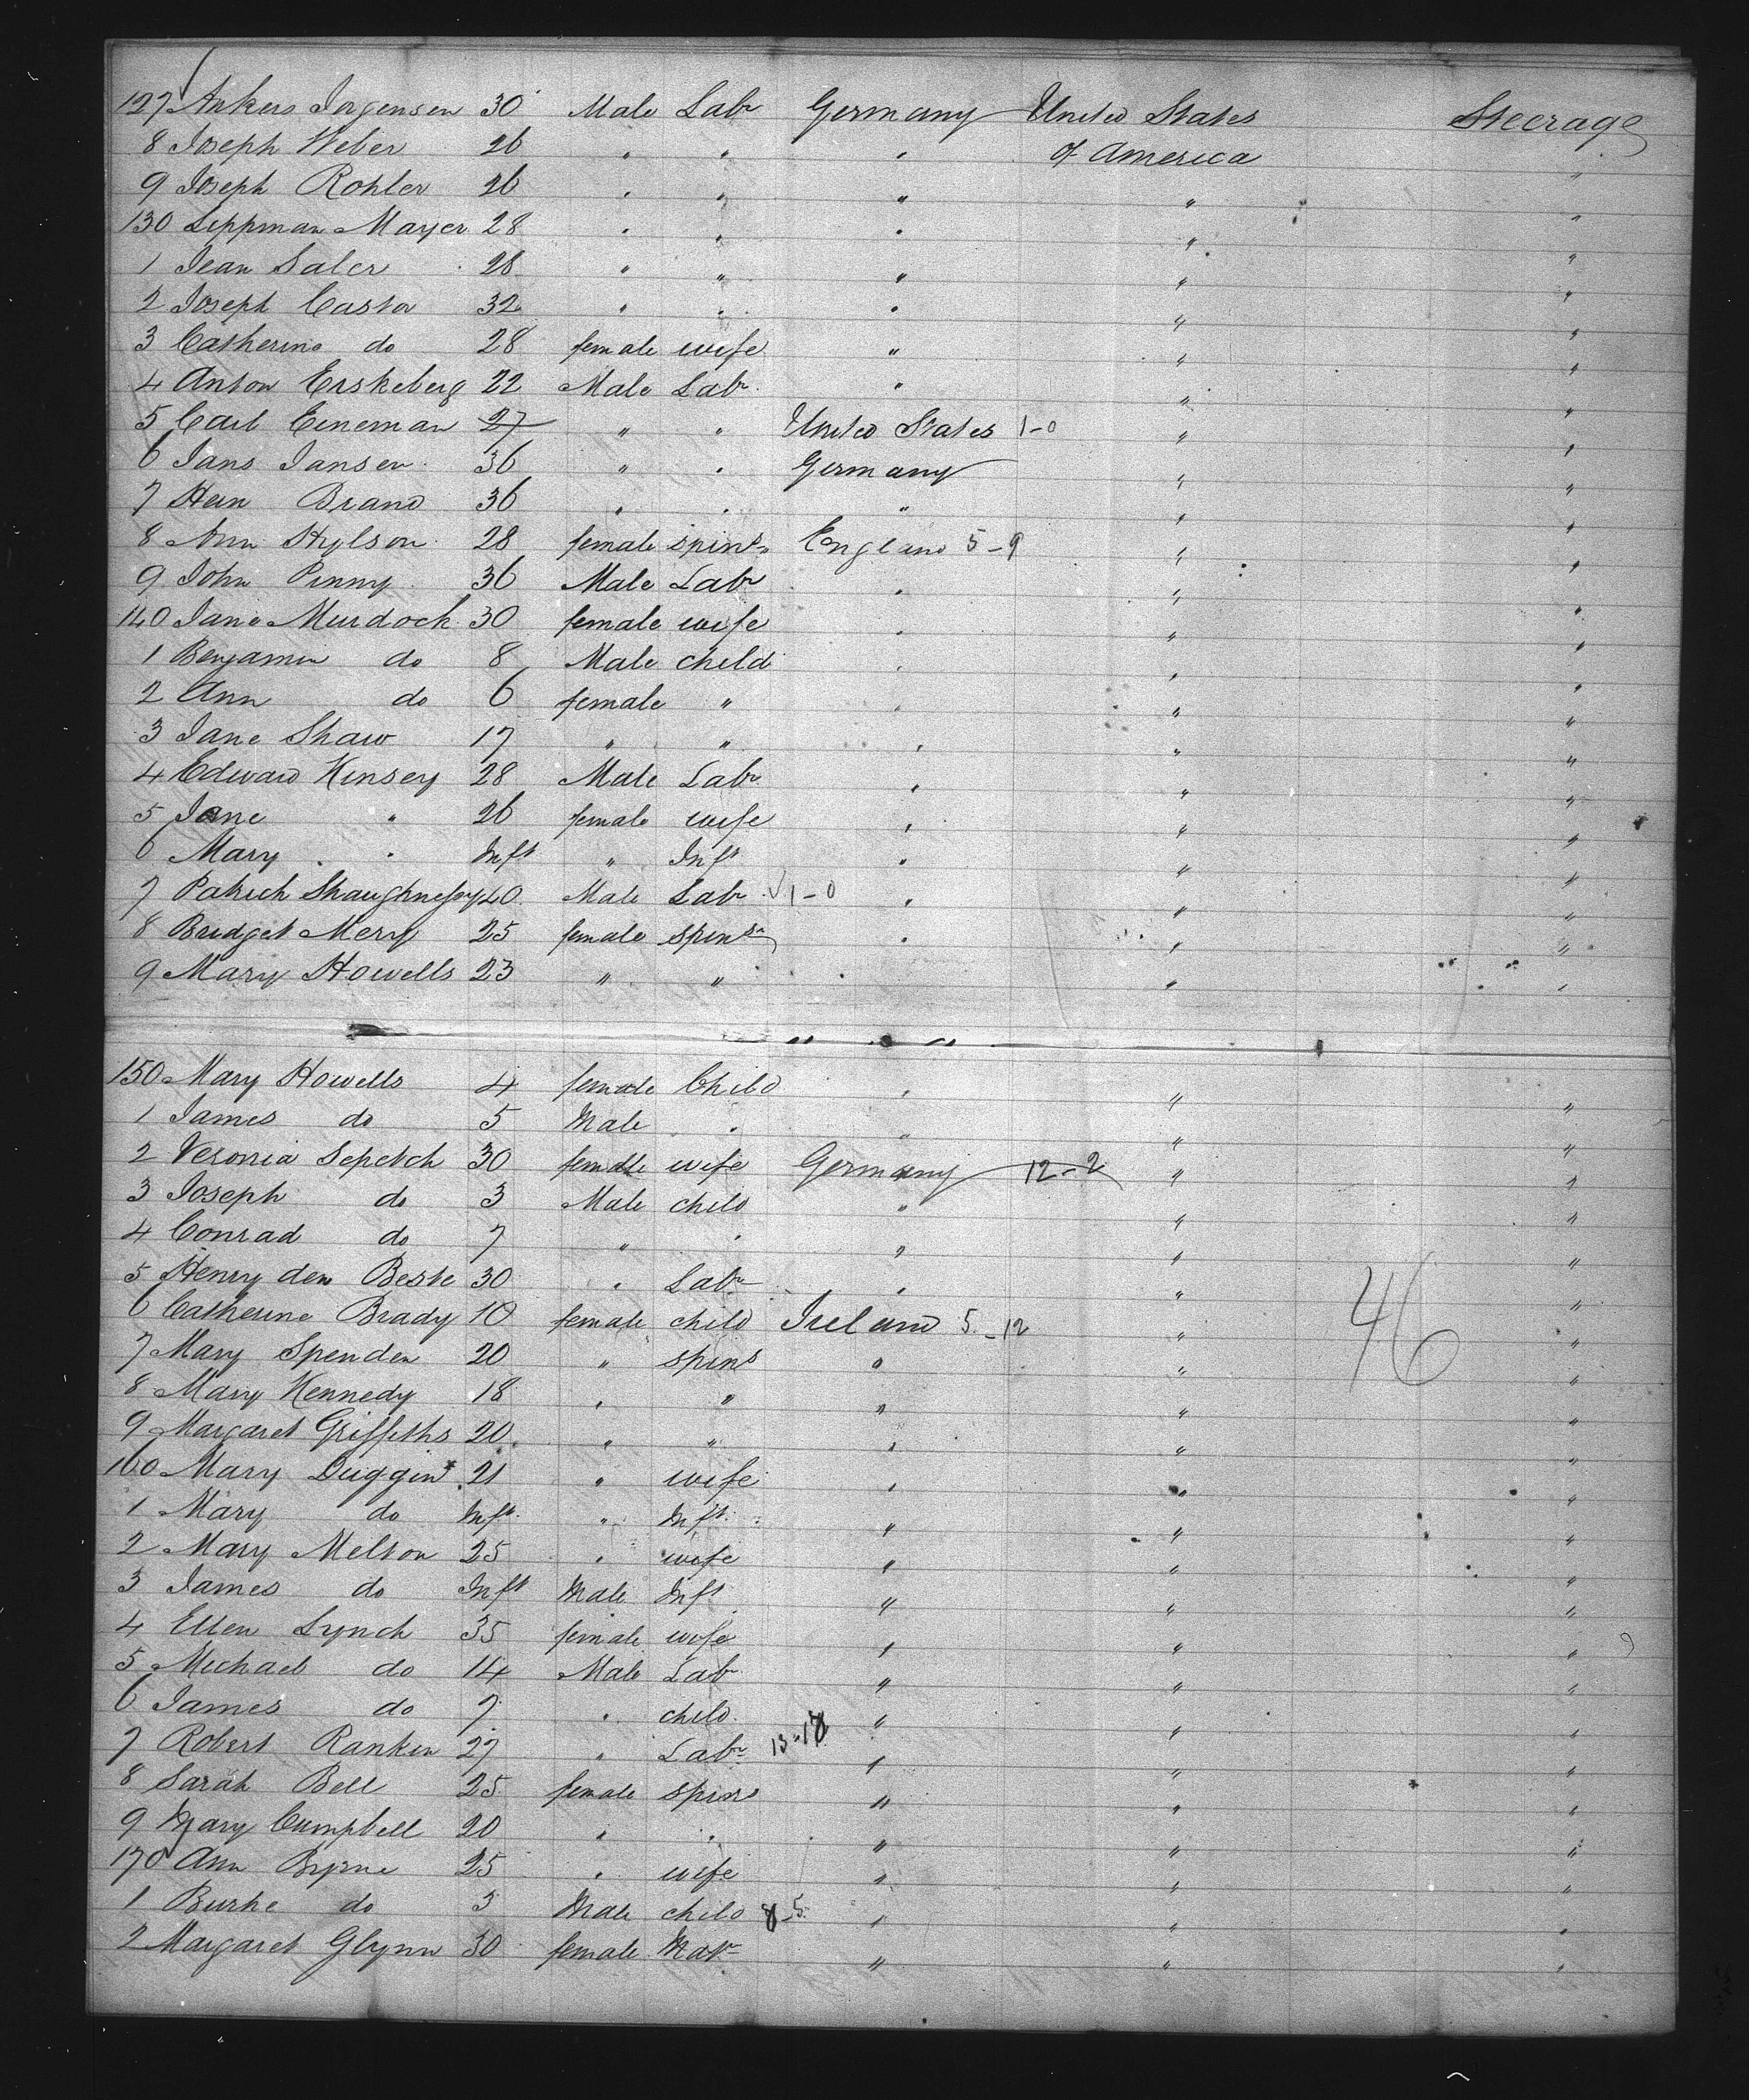 127 Ankers Jorgensen 30 Male Labr Germany United States Steerage
8 Joseph Weber 26 " " " of America "
9 Joseph Rohler 26 " " " " "
130 Lippman Mayer 28 " " " " "
1 Jean Saler 28 " " " " "
2 Joseph Castor 32 " " " " "
3 Catherine do 28 female wife " " "
4 Anton Erskeberg 22 Male Labr " " "
5 Carl Eineman 27 " " United States 1-0 " "
6 Jans Jansen 36 " " Germany " "
7 Hein Brand 36 " " " " "
8 Ann Hylson 28 female spinsr England 5-9 " "
9 John Pinny 36 Male Labr " " "
140 Jane Murdoch 30 female wife " " "
1 Benjamin do 8 Male child " " "
2 Ann do 6 female " " " "
3 Jane Shaw 17 " " " " "
4 Edward Kinsey 28 Male Labr " " "
5 Jane " 26 female wife " " "
6 Mary " Inft " Inft " " "
7 Patrick Shaughnessy 40 Male Labr 1-0 " " "
8 Bridget Merry 25 female spinsr " " "
9 Mary Howells 23 " " " " "
" " "
150 Mary Howells 4 female Child " " "
1 James do 5 Male " " " "
2 Veronia Sepetch 30 female wife Germany 12-2 " "
3 Joseph do 3 Male child " " "
4 Conrad do 7 " " " " "
5 Henry den Beste 30 " Labr " " "
6 Catherine Brady 10 female child Ireland 5-12 " "
46
7 Mary Spenden 20 " spins " " "
8 Mary Kennedy 18 " " " " "
9 Margaret Griffeths 20 " " " " "
160 Mary Duggin 21 " wife " " "
1 Mary do Inft " Inft " " "
2 Mary Melton 25 " wife " " "
3 James do Inft Male Inft " " "
4 Ellen Lynch 35 female wife " " "
5 Michael do 14 Male Labr " " "
6 James do 7 " child " " "
7 Robert Rankin 27 " Labr 13-18 " " "
8 Sarah Bell 25 female spins " " "
9 Mary Campbell 20 " " " " "
170 Ann Byrne 25 " wife " " "
1 Burke do 3 Male child 8-5 " " "
2 Margaret Glynn 30 female Matr " " "